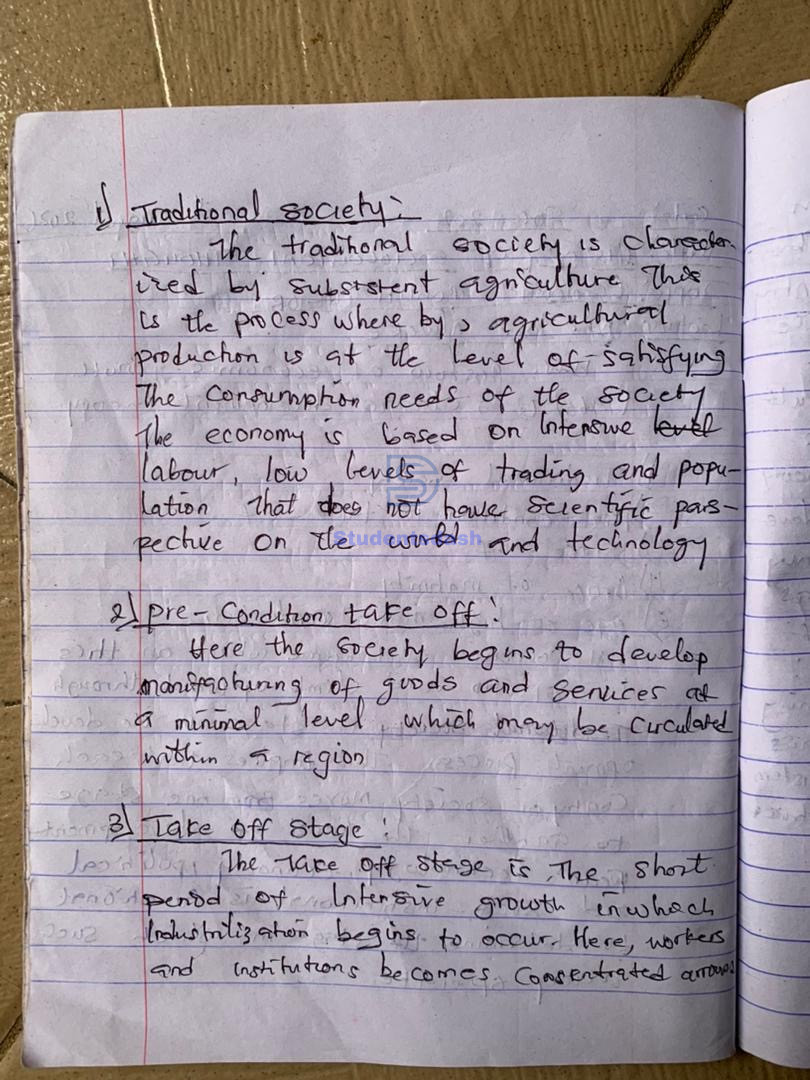 1) Traditional society:
The traditional society is character
ized by subststent agriculture This
is the process where by, agricultural
production is at the level of satisfying
The consumption needs of the society
The economy is based on Intensive level
labour, low levels of trading and popu-
lation that does not have scientific pars-
pective on the world and technology
Students
2) pre-condition take off:
Here the society begins to develop
manufacturing of goods and services at
a minimal level, which may be circulated
within a region
3) Take off stage:
The take off stage is the short
period of Intensive growth in which
Industrilization begins to occur. Here, workers
and institutions becomes consentrated